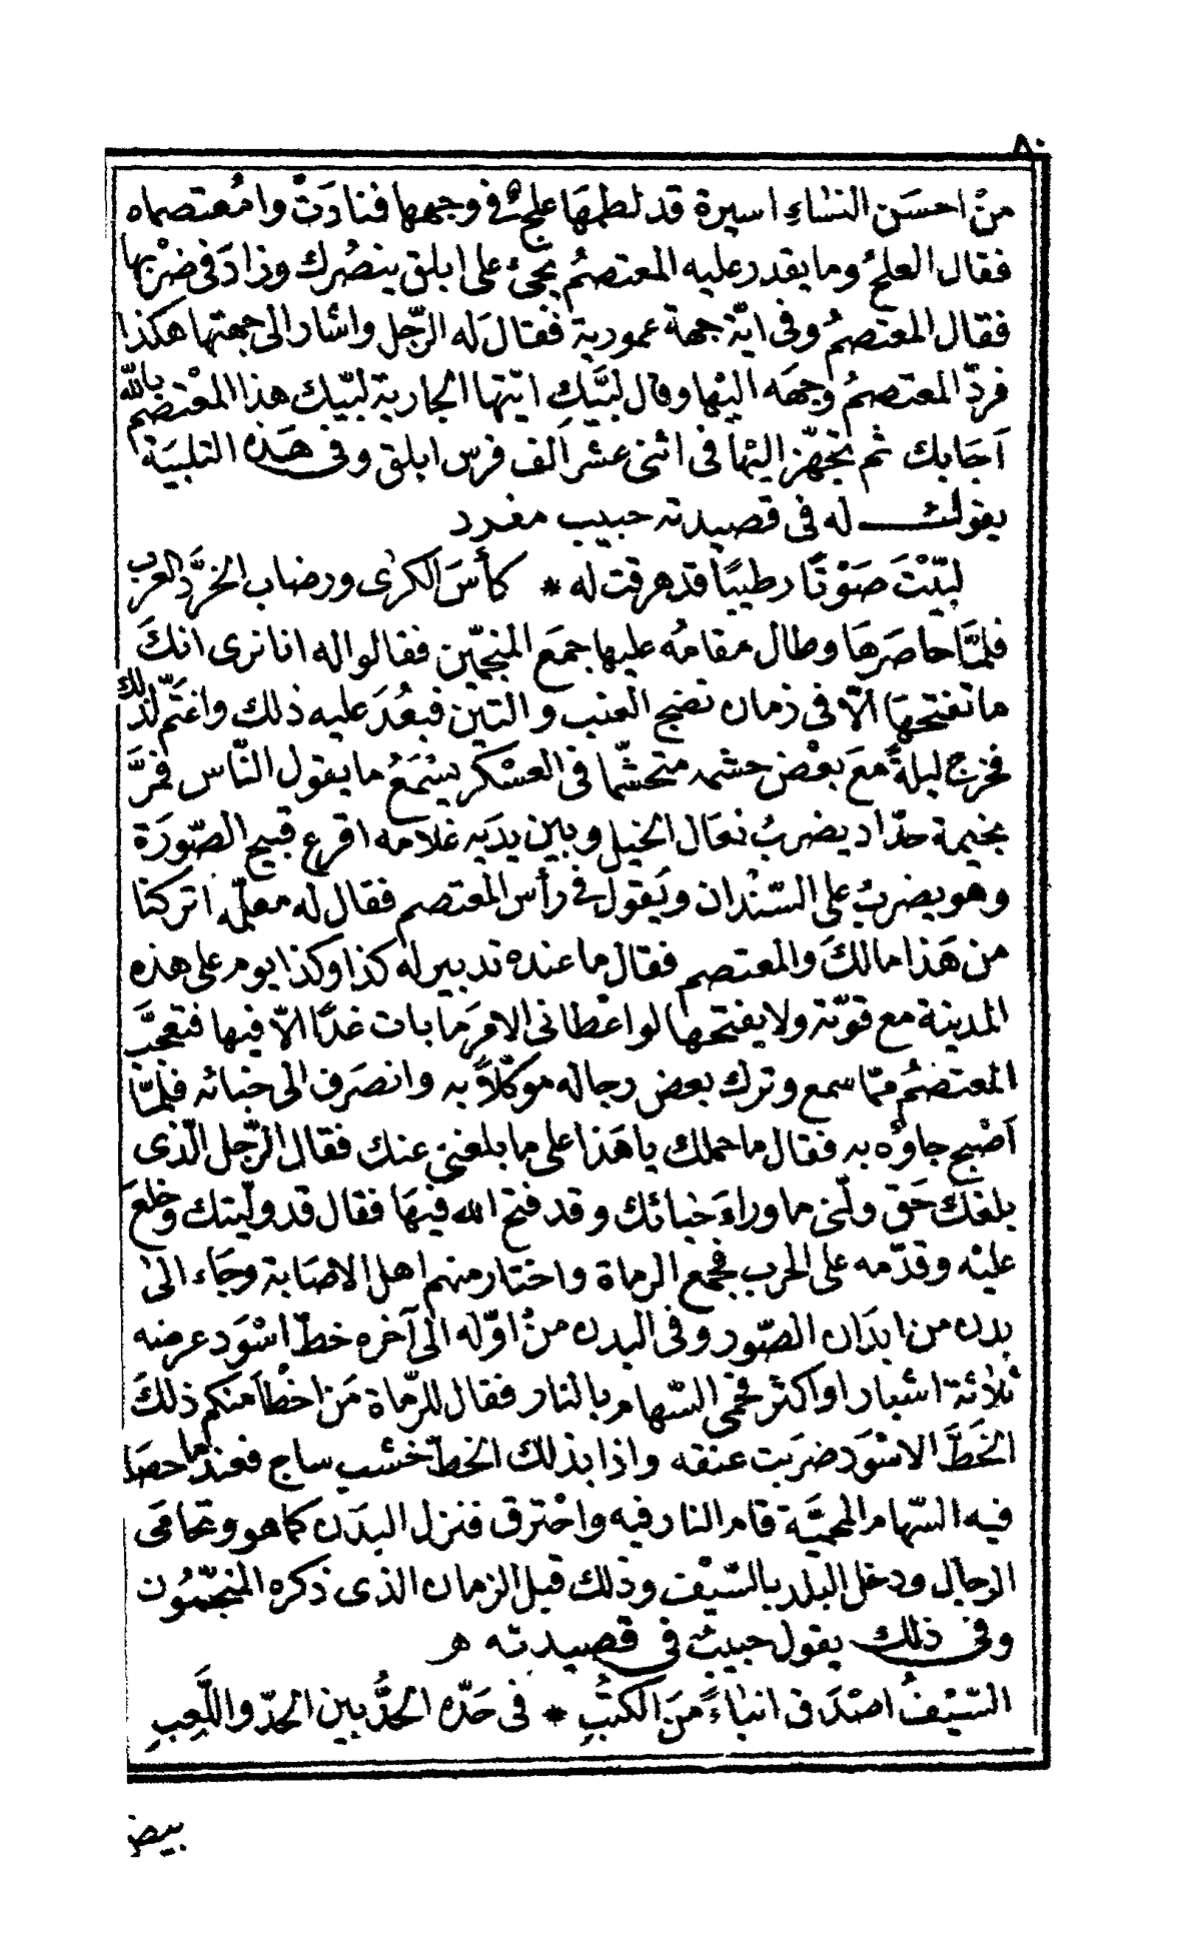 ٨٠
منْ احسَن النسَاءِ اسيرة قد لطمهَا علجٌ فى وجهها فنادَتْ وامُعتصماه
فقال العلجُ وما يقدر عليه المعتصمُ يجئ على ابلق ينصُرك وزادَ فى ضرْبها
فقال المعتصمُ وفى ايّة جهة عمورية فقالَ له الرّجل واشار الى جهتها هكذا
فردّ المعتصمُ وجهَه اليْها وقال لبَّيكِ ايّتها الجارية لبّيك هذا المعْتصم بالله
اَجَابك ثم تجهّز اليْها فى اثنى عشر الف فرس ابلق وفى هَذه التلبيَة
يقول له فى قصيدته حبيب مفرد
لبّيْتَ صَوْتًا رطيبًا قد هرقت له * كأسَ الكرى ورضاب الخرَّد العرب
فلمَّا حاصَرهَا وطال مقامُه عليها جمَع المنجّمين فقالوا له انا نرى انكَ
ما تفتحهَا الّا فى زمان نضج العنب والتين فبعُدَ عليه ذلك واغتَمّ لذلك
فخرج ليلةً معَ بعْض حشمه متحشّما فى العسْكر يسْمَعُ ما يقول النّاس فمرَّ
بخيمة حدّاد يضربُ نعال الخيل وبين يدَيه غلامه اقرع قبيح الصّورَة
وهو يضربُ على السّنْدان ويَقول فى رأس المعتصم فقال له معلمّه اتركنا
من هَذا مالكَ والمعتصم فقال ما عنده تدبير له كذا وكذا يوم على هذه
المدينة مع قوّته ولا يفتحها لو اعْطانى الامرَ ما بات غدًا الاّ فيها فتعجّبَ
المعتصمُ ممّا سمع وترك بعض رجاله موكّلاً به وانصَرف الى خبائه فلمّا
اَصْبح جاوُه به فقال ما حملك يا هَذا على ما بلغنى عنك فقال الرّجل الّذى
بلغكَ حَق ولّنى ما وراءَ خبائك وقد فتح الله فيهَا فقال قد ولّيتك وخلعَ
عليْه وقدّمه على الحرب فجمع الرماة واختار منهم اهل الاصَابة وجَاء الى
بدن من ابدَان الصّور وفى البدن منْ اوّله الى آخره خطّ اسْوَد عرضه
ثلاثة اشبار او اكثر فحمى السّهام بالنار فقال للرّماة مَن اخْطاَ منكم ذلكَ
الخَطَّ الاسْوَد ضربَت عنقه واذا بذلك الخطّ خشب ساج فعندما حصل
فيه السّهام المحميَّة قام النار فيه واحْترق فنزل البدَن كما هو وتحامَى
الرجال ودخل البلد بالسّيْف وذلك قبل الزمان الذى ذكره المنجّمُون
وفى ذلك يقول حبيبٌ فى قصيدته هر
السّيْفُ اصْدَق انبَاءً مَن الكتُبِ * فى حَدّه الحدُّ بين الجدّ واللَّعِبِ
بيض